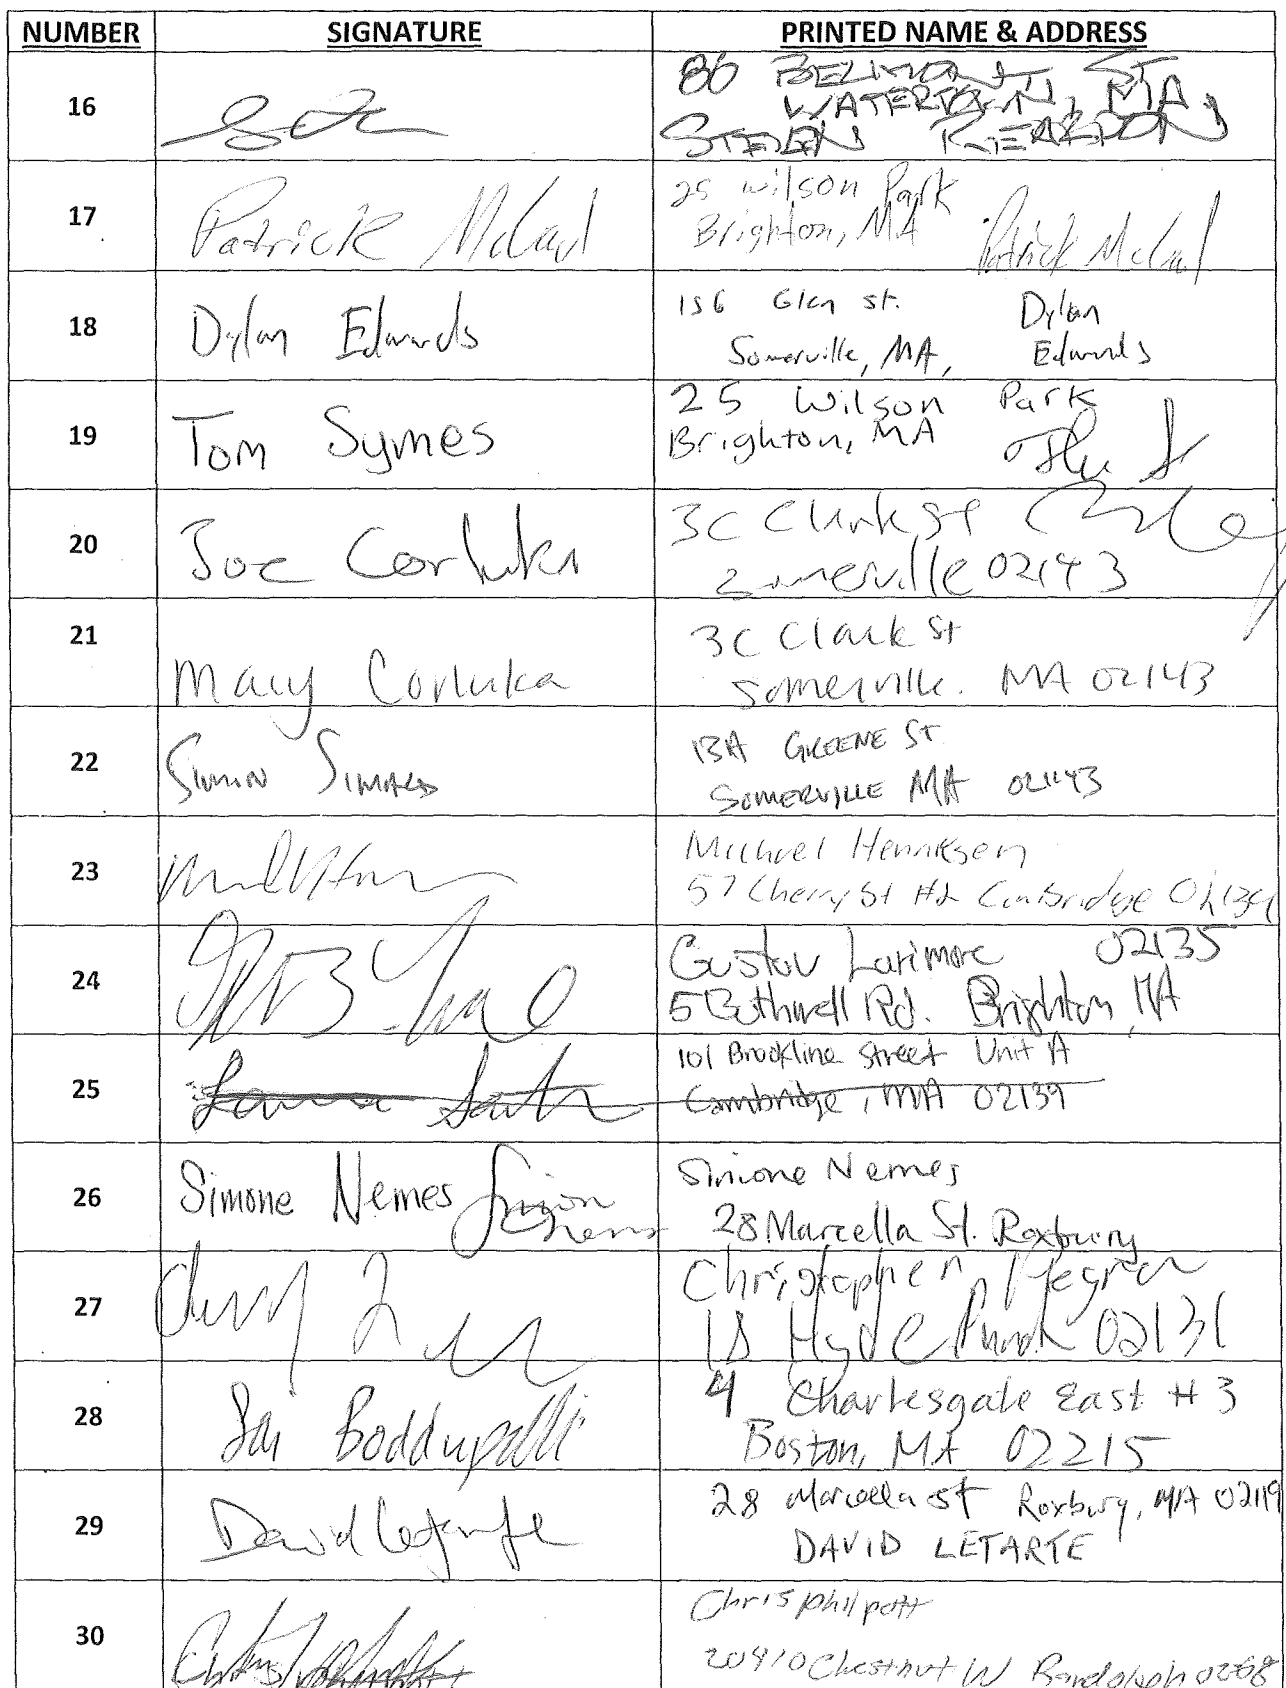 NUMBER SIGNATURE PRINTED NAME & ADDRESS
16
86 BELMONT ST
WATERTOWN, MA,
STEVEN REARDON
17 Patrick
25 Wilson Park
Brighton, MA Patrick
18 Dylan Edwards
156 Glen St. Dylan
Somerville, MA, Edwards
19 Tom Symes
25 Wilson Park
Brighton, MA
20 Joe Corluka
3C Clark St
Somerville 02143
21 Mary Corluka
3C Clark St
Somerville. MA 02143
22 Simon
13A GREENE ST
SOMERVILLE MA 02143
23
Michael Henriksen
57 Cherry St #2 Cambridge 02139
24
Gustav Larimore 02135
5 Bothwell Rd. Brighton, MA
25
101 Brookline Street Unit A
Cambridge, MA 02139
26 Simone Nemes
Simone Nemes
28 Marcella St. Roxbury
27
Christopher
18 Hyde 02131
28 Sai Boddupalli
4 Charlesgate East #3
Boston, MA 02215
29 David Letarte
28 Marcella St Roxbury, MA 02119
DAVID LETARTE
30
Chris Philpott
Chestnut W Randolph